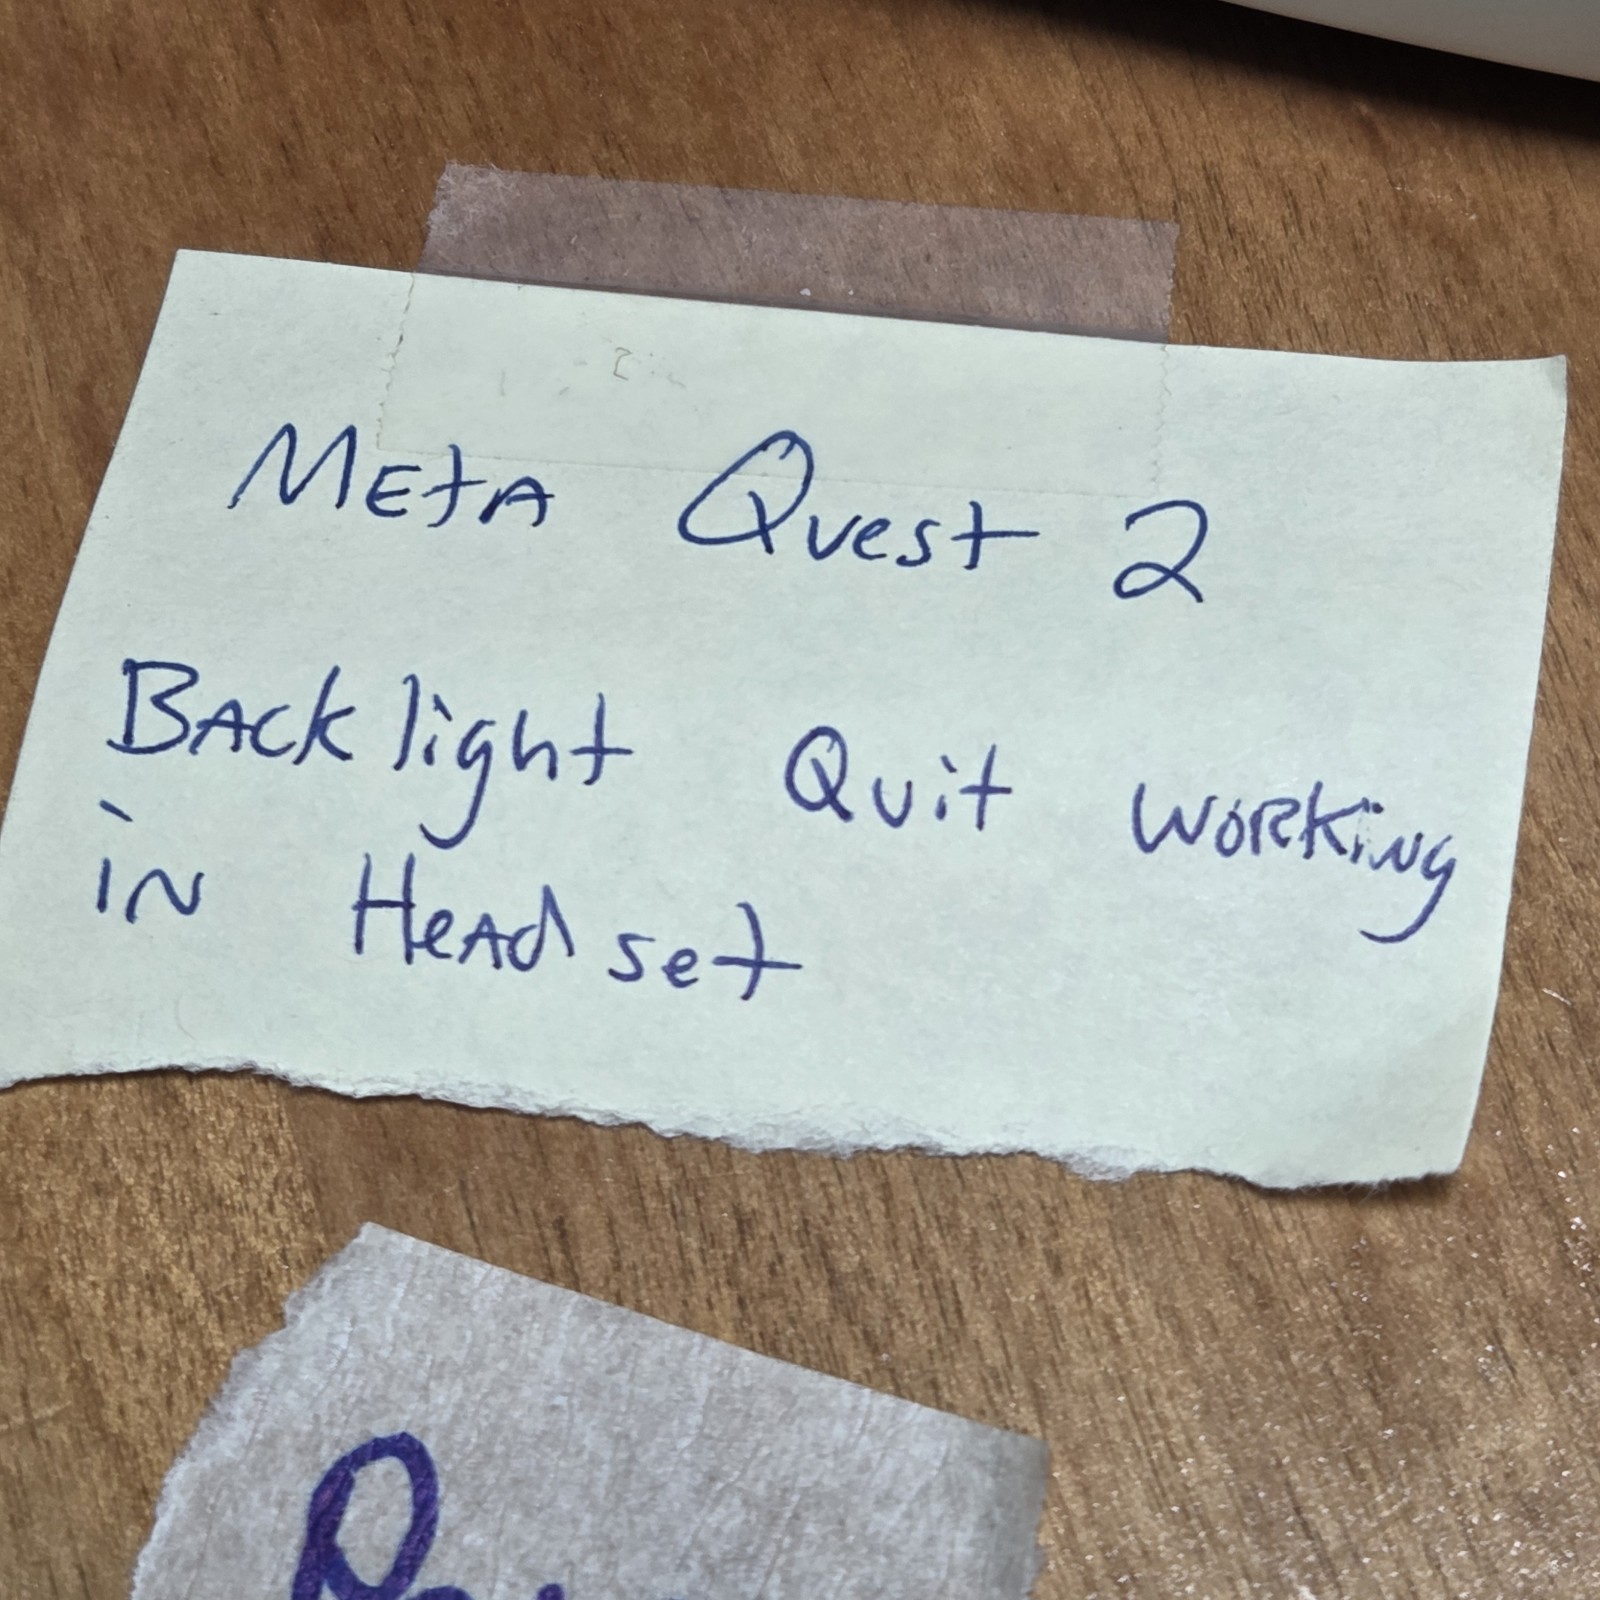 Meta Quest 2
Backlight Quit working
in Headset